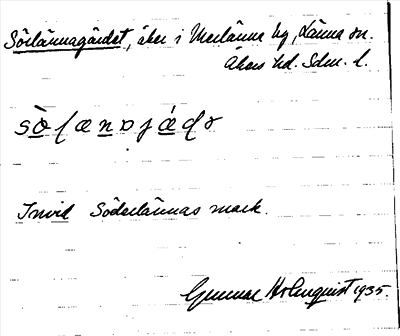 Sörlännagärdet, åker i Merlänna by, Länna sn.
Åkers hd. Sdm. l.
Invid Söderlännas mark.
Gunnar Holmquist 1935.